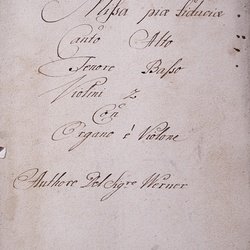 Missa piæ Fiduciæ
Canto Alto
Tenore Basso
Violini 2
Con
Organo è Violone
Authore Del Sigre Werner